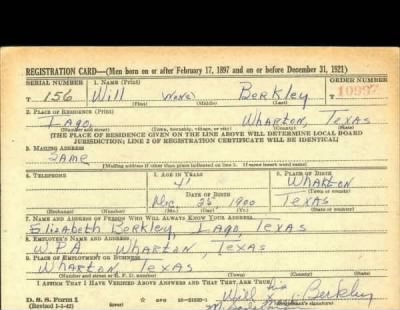 REGISTRATION CARD—(Men born on or after February 17, 1897 and on or before December 31, 1921)
SERIAL NUMBER 1. NAME (Print) ORDER NUMBER
T 156 Will (None) Berkley T 10997
(First) (Middle) (Last)
2. PLACE OF RESIDENCE (Print)
Iago, Wharton, Texas
(Number and street) (Town, township, village, or city) (County) (State)
[THE PLACE OF RESIDENCE GIVEN ON THE LINE ABOVE WILL DETERMINE LOCAL BOARD
JURISDICTION; LINE 2 OF REGISTRATION CERTIFICATE WILL BE IDENTICAL]
3. MAILING ADDRESS
Same
[Mailing address if other than place indicated on line 2. If same insert word same]
4. TELEPHONE 5. AGE IN YEARS 6. PLACE OF BIRTH
41 Wharton
DATE OF BIRTH (Town or county)
Dec. 25, 1900 Texas
(Exchange) (Number) (Mo.) (Day) (Yr.) (State or country)
7. NAME AND ADDRESS OF PERSON WHO WILL ALWAYS KNOW YOUR ADDRESS
Elizabeth Berkley, Iago, Texas
8. EMPLOYER'S NAME AND ADDRESS
W.P.A Wharton, Texas
9. PLACE OF EMPLOYMENT OR BUSINESS
Wharton Texas
(Number and street or R. F. D. number) (Town) (County) (State)
I AFFIRM THAT I HAVE VERIFIED ABOVE ANSWERS AND THAT THEY ARE TRUE.
D. S. S. Form 1 Will his Berkley
(Revised 1-1-42)